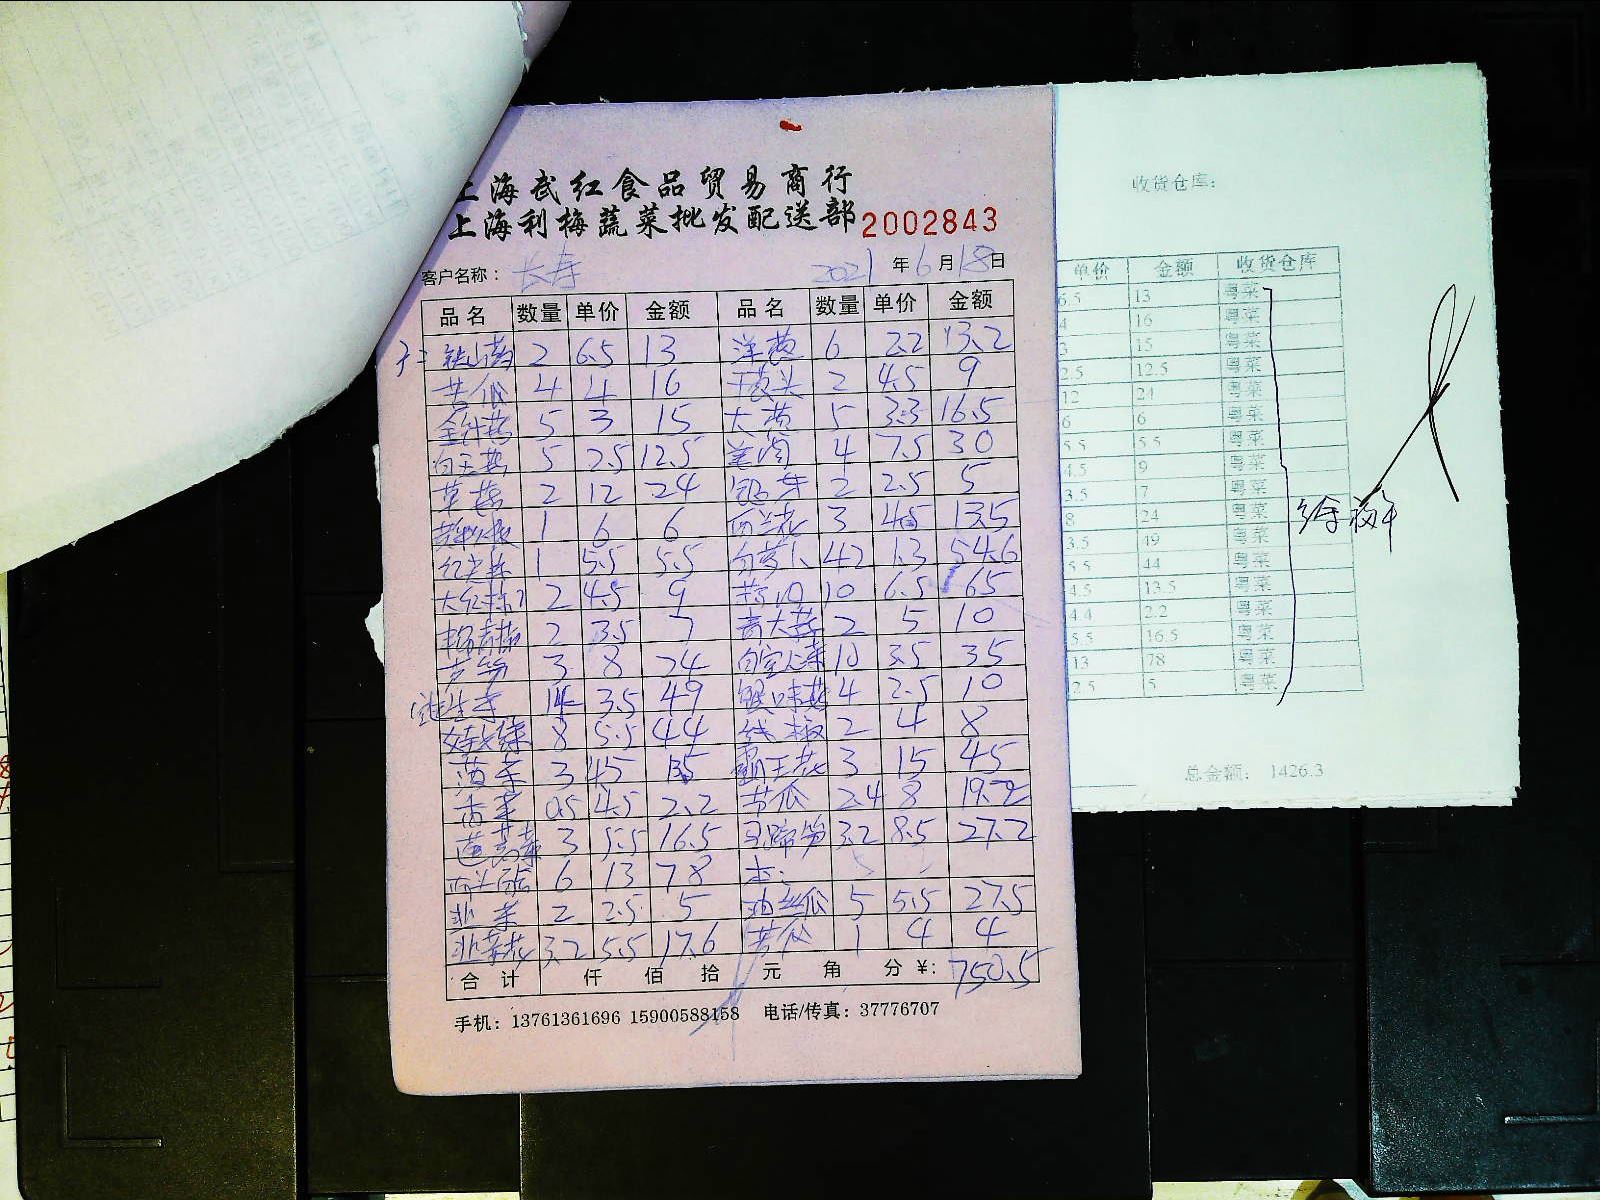 上海武红食品贸易商行
上海利梅蔬菜批发配送部 2002843
客户名称: 长寿 2021年6月18日
品名 数量 单价 金额 品名 数量 单价 金额
铁山药 2 6.5 13 洋葱 6 2.2 13.2
苦瓜 4 4 16 干葱头 2 4.5 9
金针菇 5 3 15 大葱 5 3.3 16.5
白玉菇 5 2.5 12.5 姜肉 4 7.5 30
草菇 2 12 24 银牙 2 2.5 5
黄椒 1 6 6 西兰花 3 4.5 13.5
红尖椒 1 5.5 5.5 白萝卜 42 1.3 54.6
大红椒 2 4.5 9 10 6.5 65
杨青椒 2 3.5 7 青大蒜 2 5 10
芦笋 3 8 24 白空心菜 10 3.5 35
生菜 14 3.5 49 蟹味菇 4 2.5 10
8 5.5 44 线椒 2 4 8
菠菜 3 4.5 13.5 霸王花 3 15 45
香菜 0.5 4.5 2.2 节瓜 2.4 8 19.2
蓬蒿菜 3 5.5 16.5 马蹄笋 3.2 8.5 27.2
6 13 78 本:
韭菜 2 2.5 5 油丝瓜 5 5.5 27.5
韭菜花 3.2 5.5 17.6 苦瓜 1 4 4
合计 仟 佰 拾 元 角 分 ¥: 750.5
手机: 13761361696 15900588158 电话/传真: 37776707
收货仓库:
单价 金额 收货仓库
6.5 13 粤菜
4 16 粤菜
3 15 粤菜
2.5 12.5 粤菜
12 24 粤菜
6 6 粤菜
5.5 5.5 粤菜
4.5 9 粤菜
3.5 7 粤菜
8 24 粤菜
3.5 49 粤菜
5.5 44 粤菜
4.5 13.5 粤菜
4.4 2.2 粤菜
5.5 16.5 粤菜
13 78 粤菜
2.5 5 粤菜
总金额: 1426.3